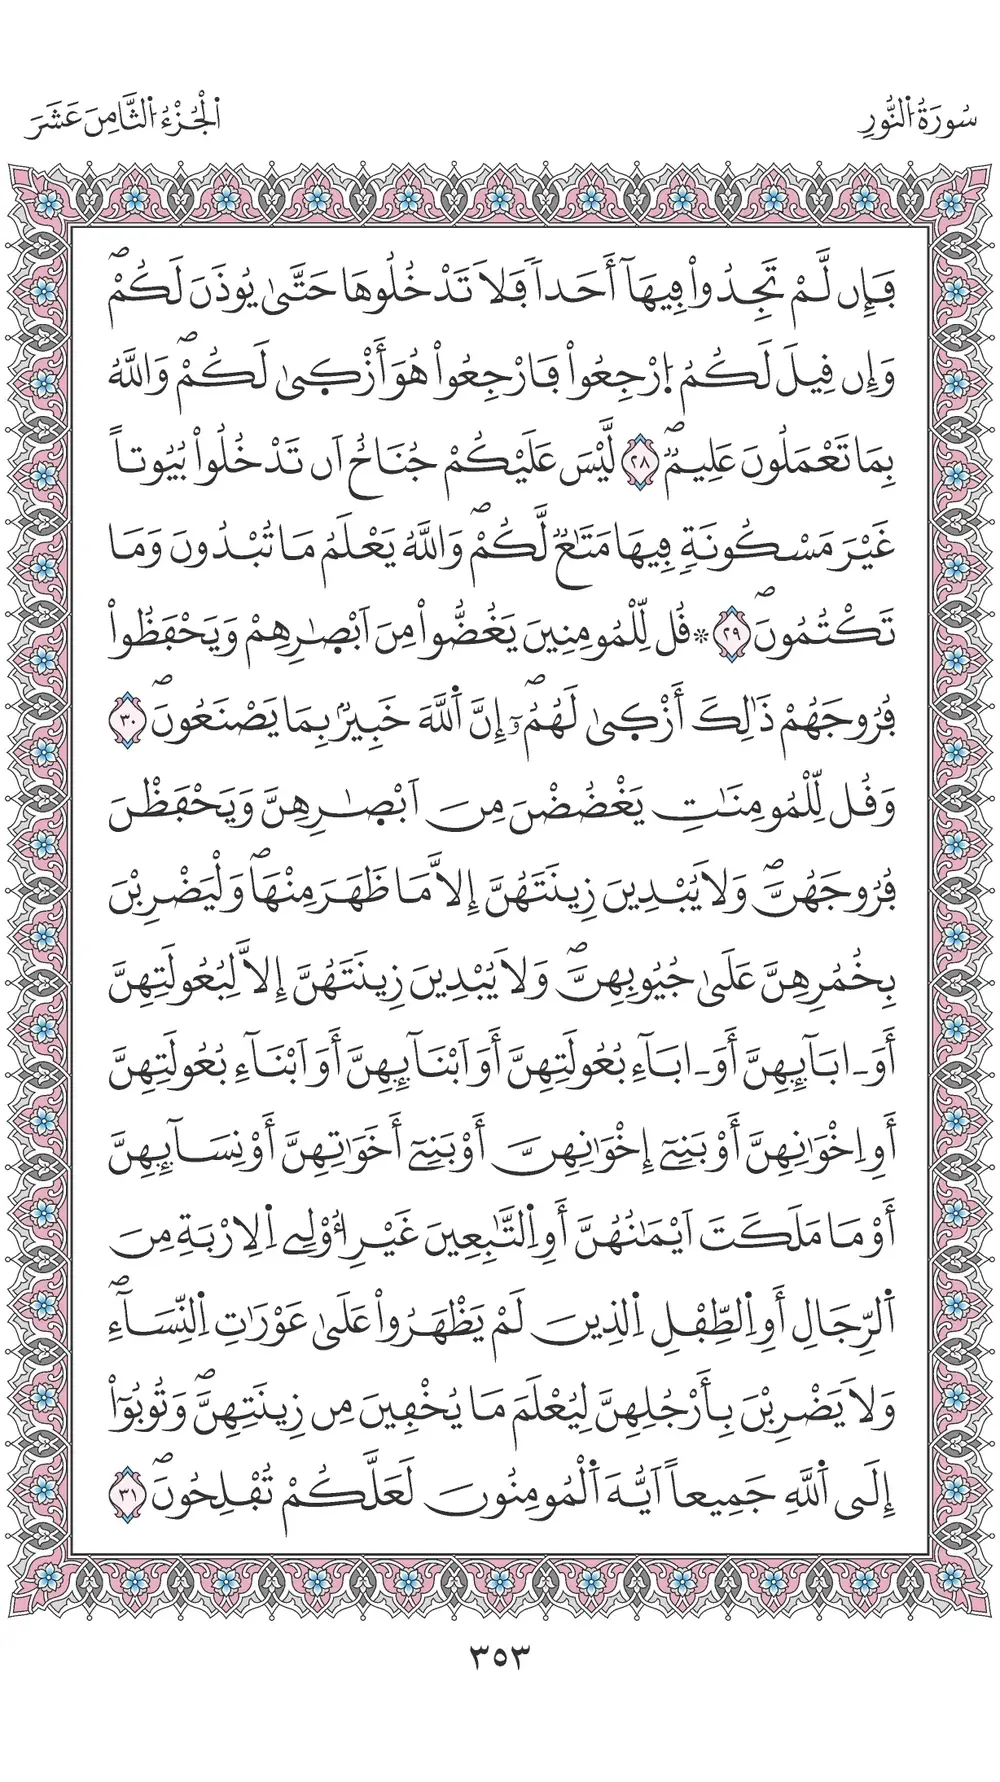 سُورَةُ اُ۬لنُّورِ
اَ۬لْجُزْءُ اُ۬لثَّامِنَ عَشَرَ
فَإِن لَّمْ تَجِدُواْ فِيهَآ أَحَداٗ فَلَا تَدْخُلُوهَا حَتَّىٰ يُوذَنَ لَكُمْۖ
وَإِن قِيلَ لَكُمُ اُ۪رْجِعُواْ فَارْجِعُواْ هُوَ أَزْكىٰ لَكُمْۖ وَاللَّهُ
بِمَا تَعْمَلُونَ عَلِيمٞۖ ٢٨ لَّيْسَ عَلَيْكُمْ جُنَاحٌ اَن تَدْخُلُواْ بُيُوتاً
غَيْرَ مَسْكُونَةٖ فِيهَا مَتَٰعٞ لَّكُمْۖ وَاللَّهُ يَعْلَمُ مَا تُبْدُونَ وَمَا
تَكْتُمُونَۖ ٢٩ ۞قُل لِّلْمُومِنِينَ يَغُضُّواْ مِنَ اَبْصٰ۪رِهِمْ وَيَحْفَظُواْ
فُرُوجَهُمْ ذَٰلِكَ أَزْكىٰ لَهُمُۥٓۖ إِنَّ اَ۬للَّهَ خَبِيرُۢ بِمَا يَصْنَعُونَۖ ٣٠
وَقُل لِّلْمُومِنَٰتِ يَغْضُضْنَ مِنَ اَبْصٰ۪رِهِنَّ وَيَحْفَظْنَ
فُرُوجَهُنَّۖ وَلَا يُبْدِينَ زِينَتَهُنَّ إِلَّا مَا ظَهَرَ مِنْهَاۖ وَلْيَضْرِبْنَ
بِخُمُرِهِنَّ عَلَىٰ جُيُوبِهِنَّۖ وَلَا يُبْدِينَ زِينَتَهُنَّ إِلَّا لِبُعُولَتِهِنَّ
أَوَ ـ ابَآئِهِنَّ أَوَ ـ ابَآءِ بُعُولَتِهِنَّ أَوَ اَبْنَآئِهِنَّ أَوَ اَبْنَآءِ بُعُولَتِهِنَّ
أَوِ اِخْوَٰنِهِنَّ أَوْ بَنِےٓ إِخْوَٰنِهِنَّ أَوْ بَنِےٓ أَخَوَٰتِهِنَّ أَوْ نِسَآئِهِنَّ
أَوْ مَا مَلَكَتَ اَيْمَٰنُهُنَّ أَوِ اِ۬لتَّٰبِعِينَ غَيْرِ أُوْلِے اِ۬لِارْبَةِ مِنَ
اَ۬لرِّجَالِ أَوِ اِ۬لطِّفْلِ اِ۬لذِينَ لَمْ يَظْهَرُواْ عَلَىٰ عَوْرَٰتِ اِ۬لنِّسَآءِۖ
وَلَا يَضْرِبْنَ بِأَرْجُلِهِنَّ لِيُعْلَمَ مَا يُخْفِينَ مِن زِينَتِهِنَّۖ وَتُوبُوٓاْ
إِلَى اَ۬للَّهِ جَمِيعاً اَيُّهَ اَ۬لْمُومِنُونَ لَعَلَّكُمْ تُفْلِحُونَۖ ٣١
٣٥٣